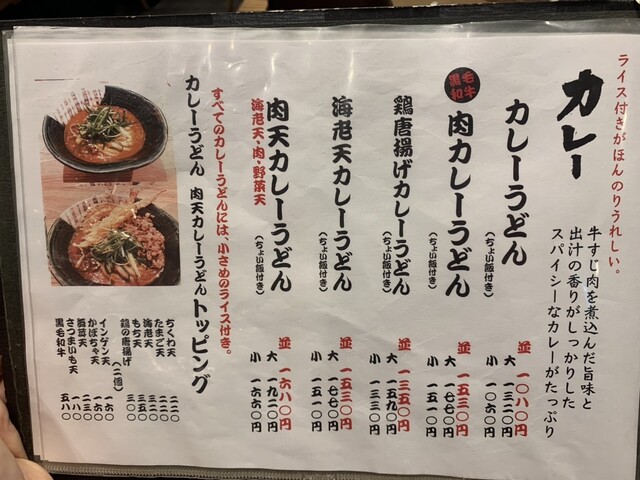 ライス付きがほんのりうれしい。
カレー
牛すじ肉を煮込んだ旨味と
出汁の香りがしっかりした
スパイシーなカレーがたっぷり
カレーうどん(ちょい飯付き)
並 一〇八〇円
大 一三二〇円
小 一〇六〇円
黒毛和牛
肉カレーうどん(ちょい飯付き)
並 一五三〇円
大 一七七〇円
小 一五一〇円
鶏唐揚げカレーうどん(ちょい飯付き)
並 一三五〇円
大 一五九〇円
小 一三三〇円
海老天カレーうどん(ちょい飯付き)
並 一五三〇円
大 一七七〇円
小 一五一〇円
肉天カレーうどん(ちょい飯付き)
海老天・肉・野菜天
並 一六八〇円
大 一九二〇円
小 一六六〇円
すべてのカレーうどんには、小さめのライス付き。
カレーうどん 肉天カレーうどん トッピング
ちくわ天 二二〇
たまご天 二二〇
海老天 三五〇
もち天
鶏の唐揚げ(二個) 三〇〇
インゲン天 一六〇
かぼちゃ天 一六〇
さつまいも天 一八〇
黒毛和牛 五八〇